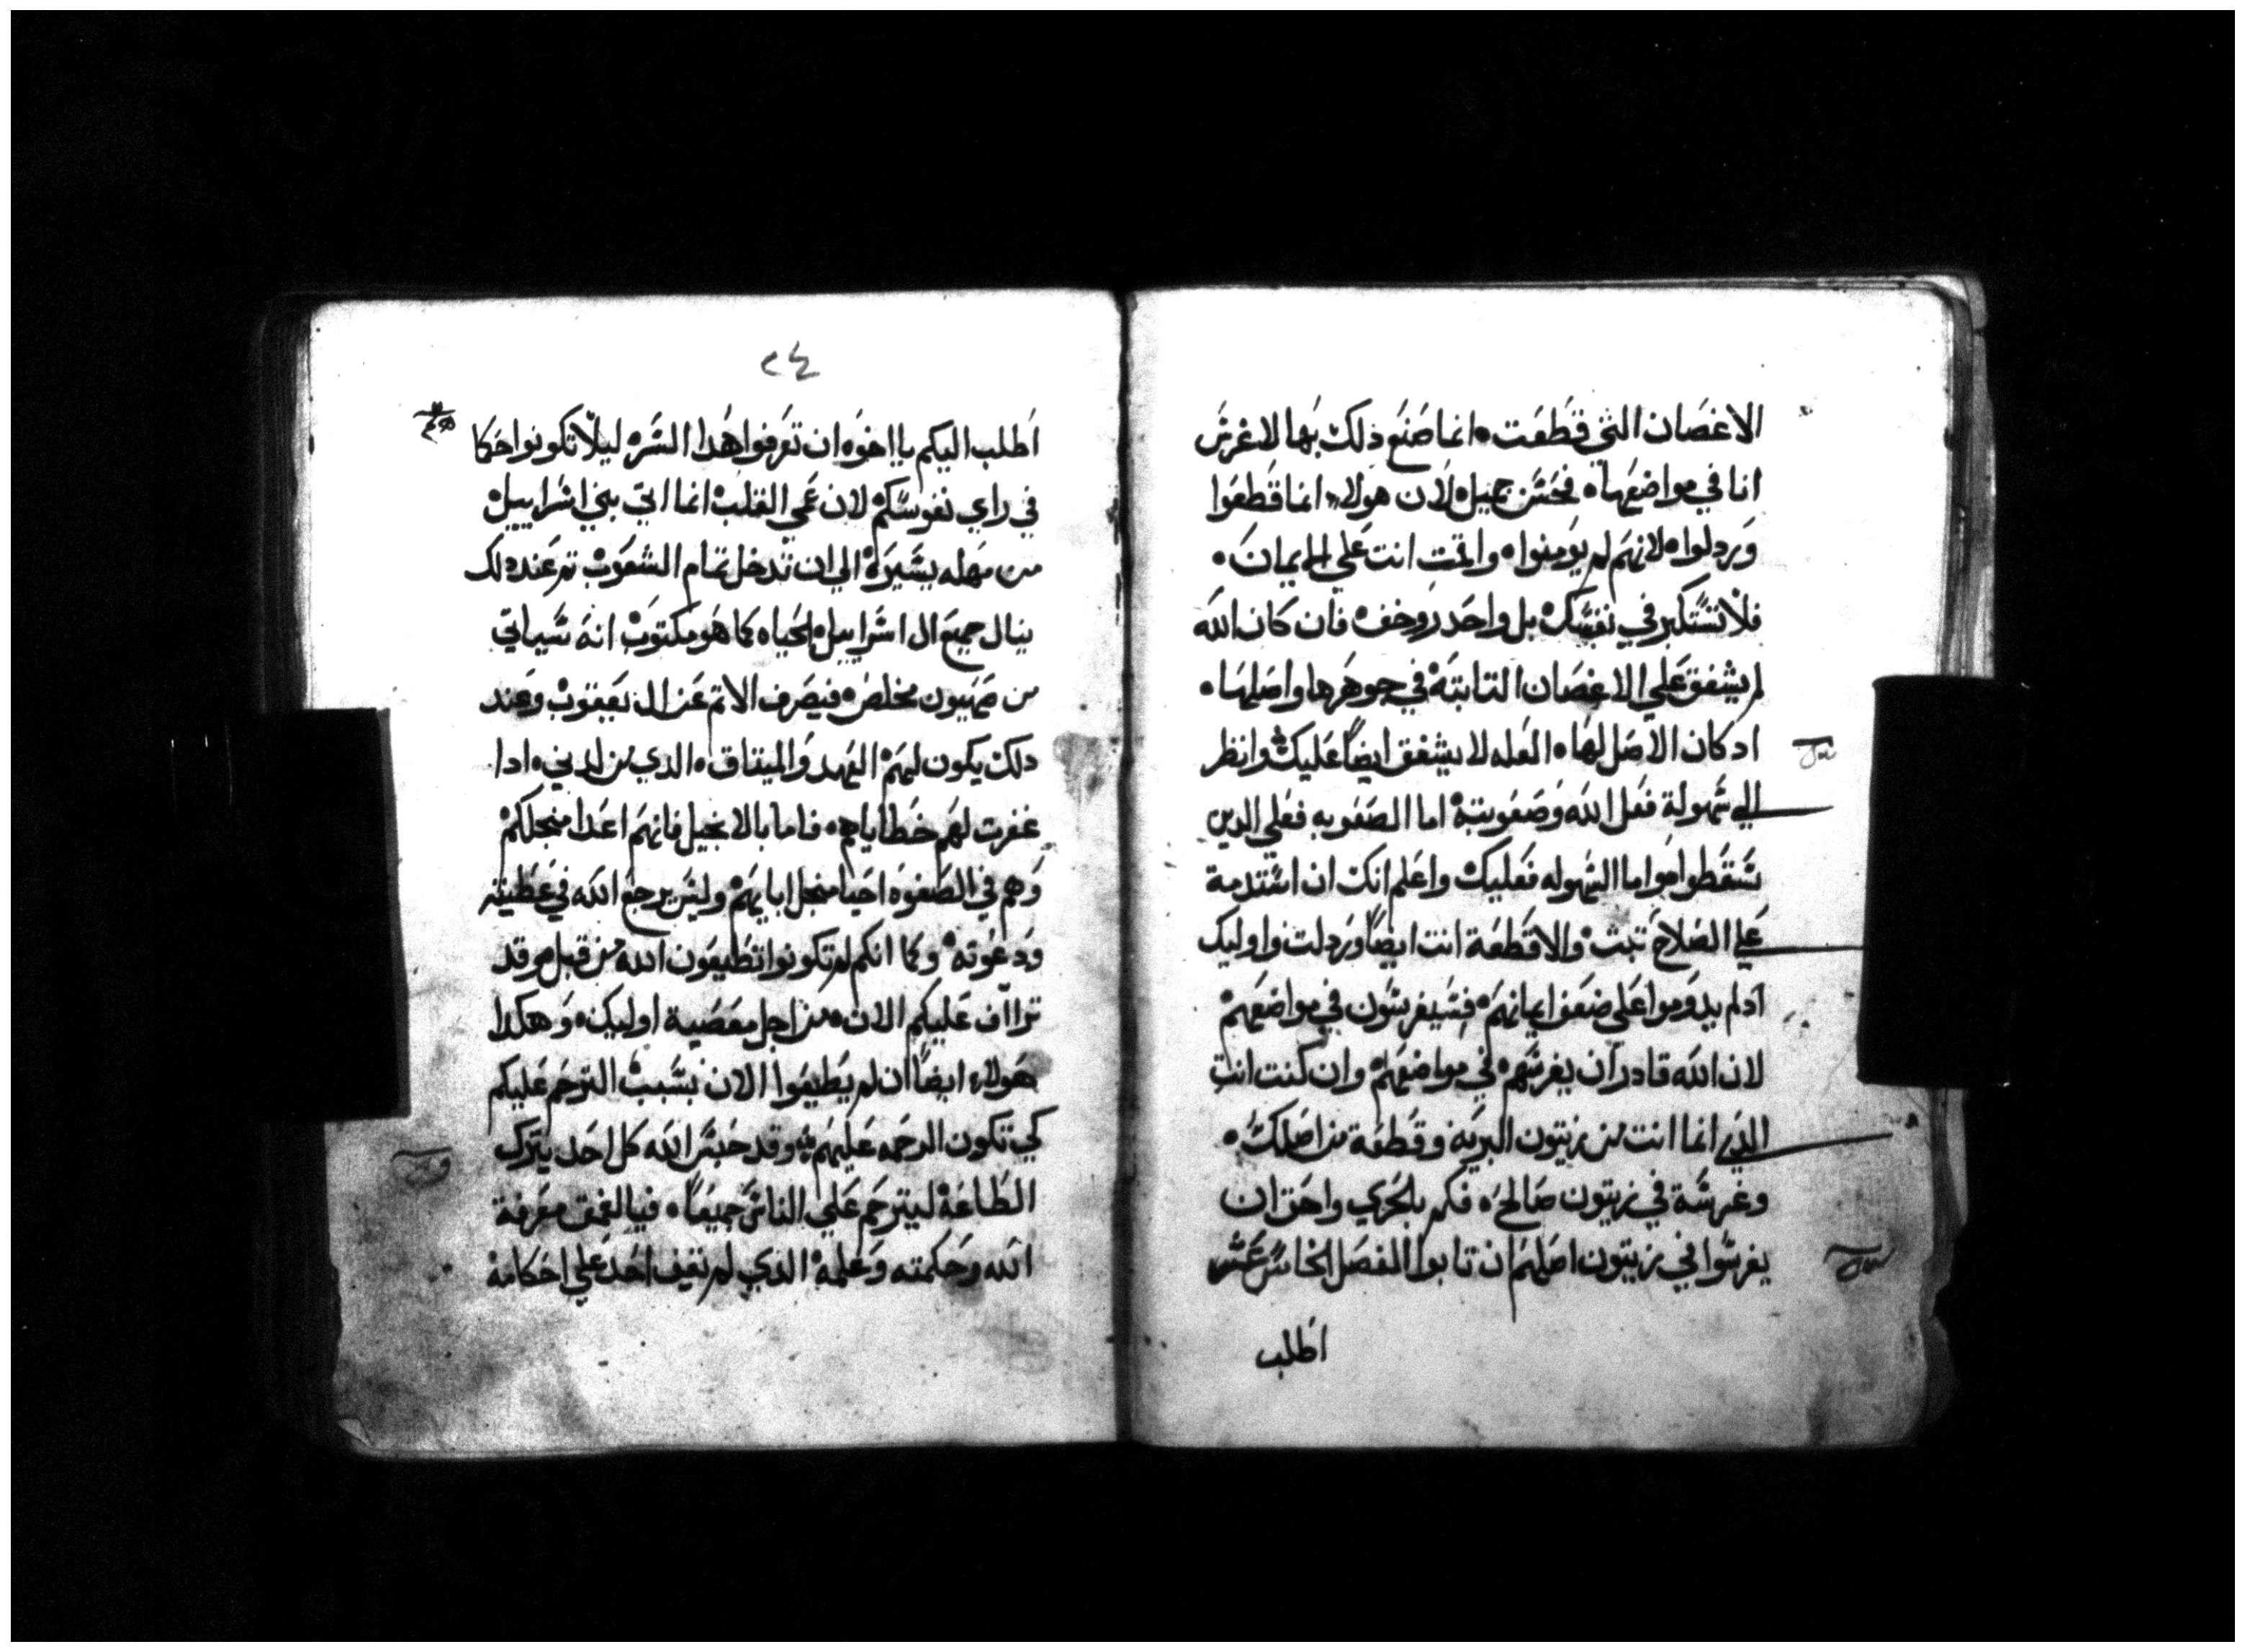 الاغصان التي قطعت ۰ انما صنع ذلك بها لاغرس
انا في مواضعها ۰ فحسن جميل لان هولاء انما قطعوا
وردلوا ۰ لانهم لم يومنوا ۰ واقمت انت علي الايمان ۰
فلا تستكبر في نفسك بل واحدر وخف ۰ فان كان الله
لم يشفق علي الاغصان التابتة في جوهرها واصلها ۰
اد كان الاصل لها ۰ العله لا يشفق ايضاً عليك وانظر
الي سهولة فعل الله وصعوبته اما الصعوبه فعلي الدين
سقطوا واما السهوله فعليك واعلم انك ان استدمة
علي الصلاح تبت والا قطعة انت ايضاً وردلت واوليك
ادلم يدوموا علي ضعف ايمانهم ۰ فسيغرسون في مواضعهم
لان الله قادر ان يغرسهم في مواضعهم وان كنت انت
الذي انما انت من زيتون البريه وقطعة من اصلك ۰
وغرسة في زيتون صالح ۰ فكم بالحري واحق ان
يغرسوا في زيتون اصلهم ان تابوا الفصل الخامس عشر
اطلب
٢٤
اطلب اليكم يا اخوه ان تعرفوا هدا السر ليلا تكونوا حكما
في راي نفوسكم لان عمي القلب انما اتي بني اسراييل
من مهله يسيرة الي ان تدخل تمام الشعوب تم عند دلك
ينال جميع ال اسراييل الحياه كما هو مكتوب انه سياتي
من صهيون مخلص ۰ فيصرف الاتم عن ال يعقوب وعند
دلك يكون لهم العهد والميتاق ۰ الدي من لدني ۰ ادا
غفرت لهم خطاياهم ۰ فاما بالانجيل فانهم اعدا منجلكم
وهم في الصفوه احبا منجل ابايهم وليس يرجع الله في عطيته
ودعوته وكما انكم لم تكونوا تطيعون الله من قبل وقد
تراأف عليكم الان ۰ من اجل معصية اوليك ۰ وهكدا
هولاء ايضاً ان لم يطيعوا الان بسبب الترحم عليكم
كي تكون الرحمه عليهم وقد حبس الله كل احد بترك
الطاعة ليترحم علي الناس جميعاً ۰ فيا لعمق معرفة
الله وحكمته وعلمه الدي لم يقف احد علي احكامه